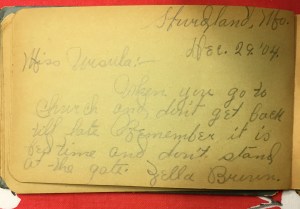 Spurgland, Mo.
Dec. 28 '04.
Miss Ursula:-
When you go to
church and don't get back
till late Remember it is
bed time and don't stand
at the gate. Zella Brunn.